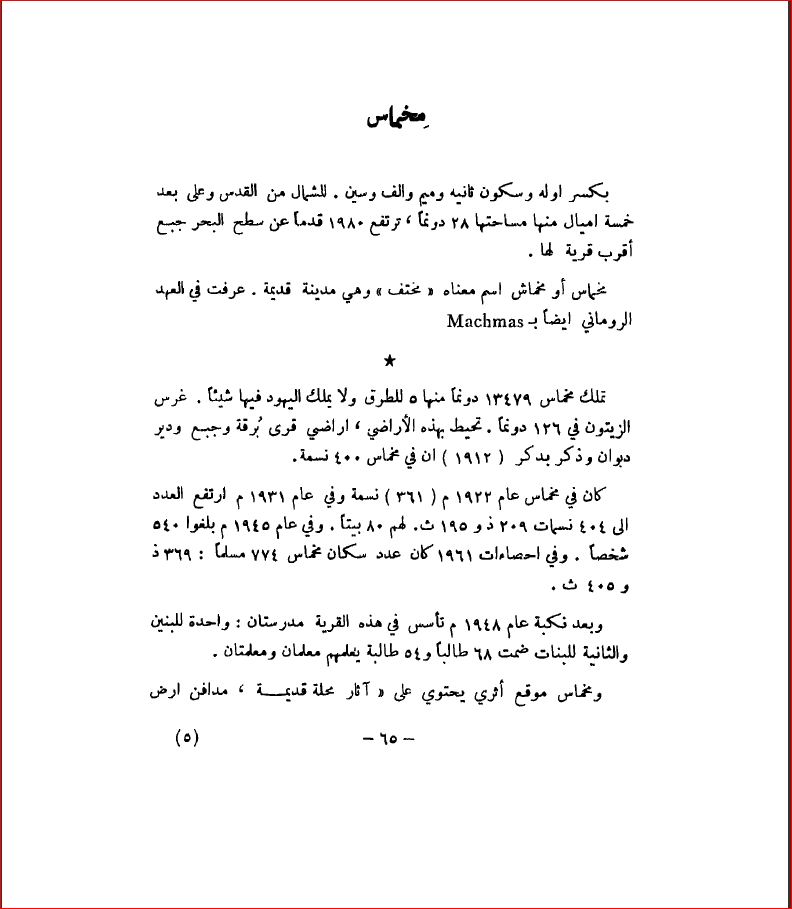 مِخماس
بكسر اوله وسكون ثانيه وميم والف وسين . للشمال من القدس وعلى بعد
خمسة اميال منها مساحتها ٢٨ دونماً ، ترتفع ١٩٨٠ قدماً عن سطح البحر جبع
أقرب قرية لها .
مخماس أو مخماش اسم معناه « مختف » وهي مدينة قديمة . عرفت في العهد
الروماني ايضاً بـ Machmas
★
تملك مخماس ١٣٤٧٩ دونماً منها ٥ للطرق ولا يملك اليهود فيها شيئاً . غرس
الزيتون في ١٢٦ دونماً . تحيط بهذه الأراضي ، اراضي قرى بُرقة وجبع ودير
دبوان وذكر بدكر ( ١٩١٢ ) ان في مخماس ٤٠٠ نسمة.
كان في مخماس عام ١٩٢٢ م ( ٣٦١ ) نسمة وفي عام ١٩٣١ م ارتفع العدد
الى ٤٠٤ نسمات ٢٠٩ ذ و ١٩٥ ث. لهم ٨٠ بيتاً . وفي عام ١٩٤٥ م بلغوا ٥٤٠
شخصاً . وفي احصاءات ١٩٦١ كان عدد سكان مخماس ٧٧٤ مسلماً : ٣٦٩ ذ
و ٤٠٥ ث .
وبعد نكبة عام ١٩٤٨ م تأسس في هذه القرية مدرستان : واحدة للبنين
والثانية للبنات ضمت ٦٨ طالباً و ٥٤ طالبة يعلمهم معلمان ومعلمتان .
ومخماس موقع أثري يحتوي على « آثار محلة قديمـــة ، مدافن ارض
— ٦٥ — (٥)